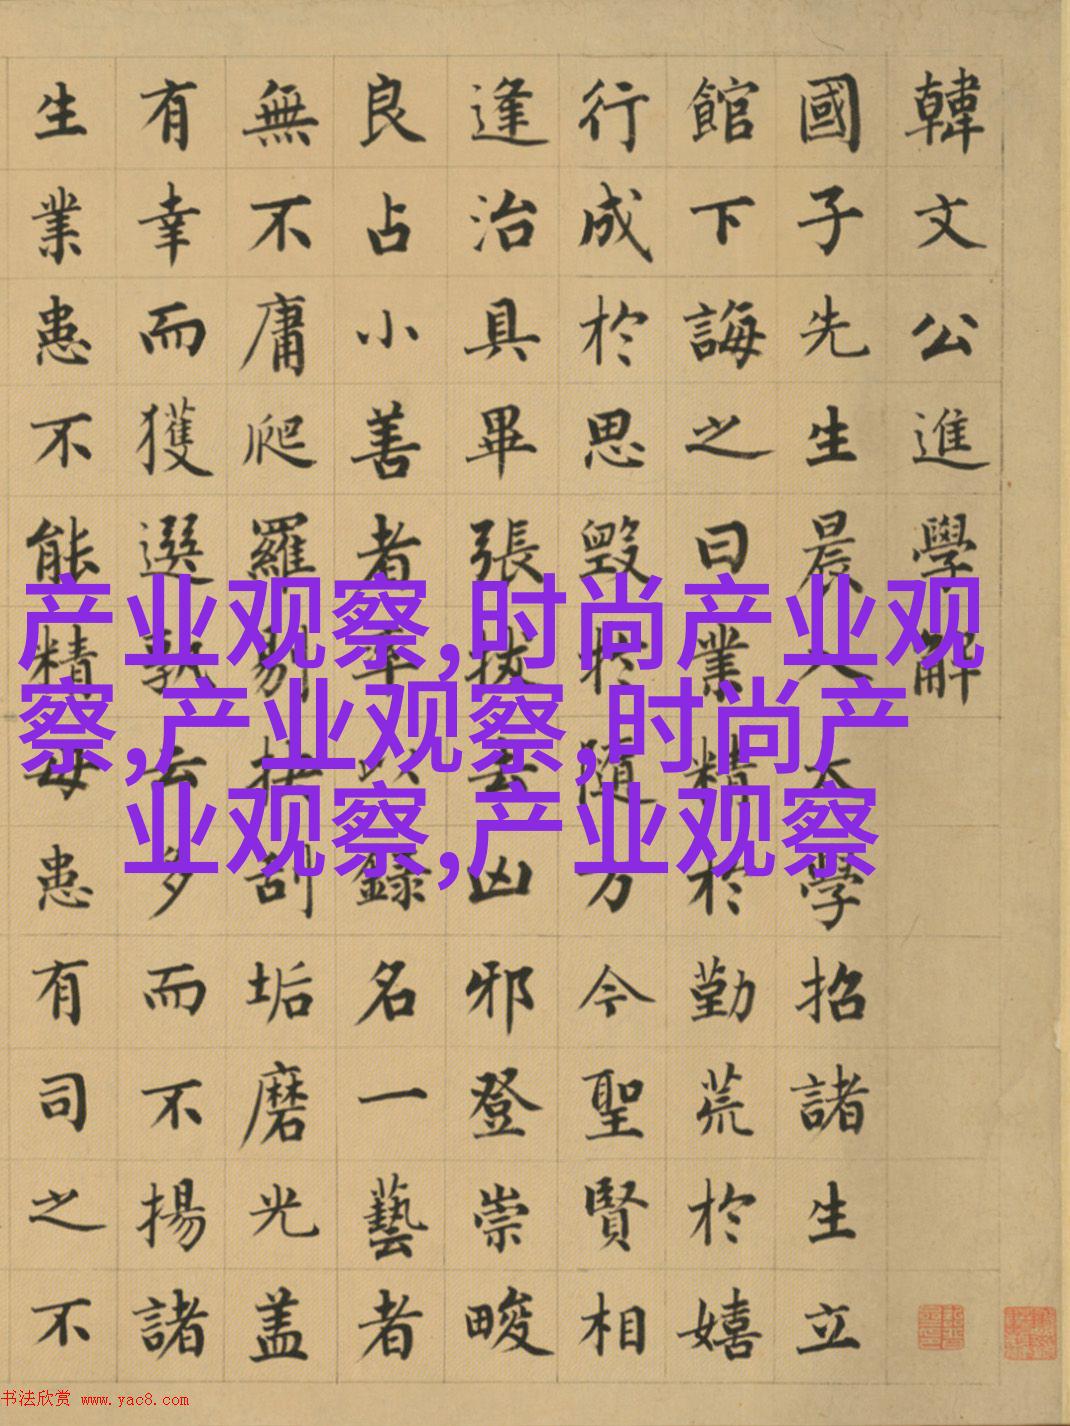 韓文公進學解
國子先生晨入太學招諸生立
館下誨之曰業精於勤荒於嬉
行成於思毀於隨方今聖賢相
逢治具畢張拔去凶邪登崇畯
良占小善者率以錄名一藝者
無不庸爬羅剔刮垢磨光盖
有幸而獲選孰云多而不揚諸
生業患不能精患有司之不
产业观察,时尚产业观
察,产业观察,时尚产
业观察,产业观察
书法欣赏 www.yac8.com